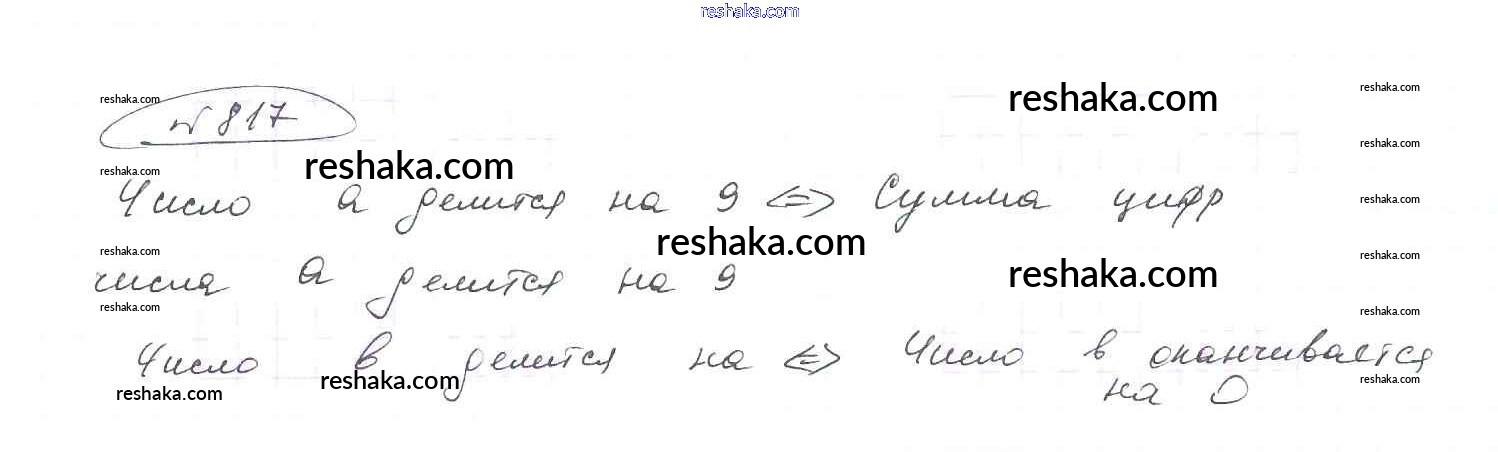 reshaka.com
reshaka.com reshaka.com reshaka.com
№ 817
reshaka.com
reshaka.com reshaka.com
Число а делится на 9 <=> Сумма цифр reshaka.com
reshaka.com reshaka.com reshaka.com
числа а делится на 9 reshaka.com
reshaka.com reshaka.com
Число в делится на <=> Число в оканчивается
reshaka.com reshaka.com на 0 reshaka.com